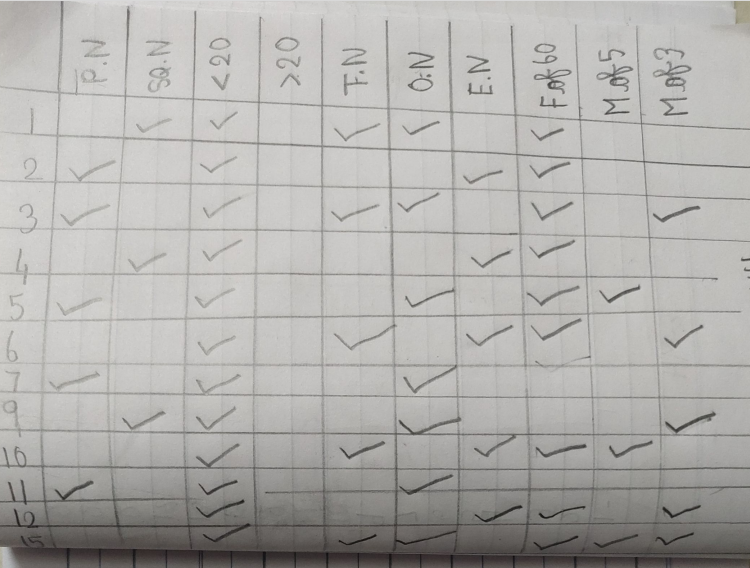 P.N SQ.N <20 >20 T.N O.N E.N F.of60 M.of5 M.of3
1 ✓ ✓ ✓ ✓ ✓
2 ✓ ✓ ✓ ✓
3 ✓ ✓ ✓ ✓ ✓ ✓
4 ✓ ✓ ✓ ✓
5 ✓ ✓ ✓ ✓ ✓
6 ✓ ✓ ✓ ✓ ✓
7 ✓ ✓ ✓
9 ✓ ✓ ✓ ✓
10 ✓ ✓ ✓ ✓ ✓
11 ✓ ✓ ✓
12 ✓ ✓ ✓ ✓
15 ✓ ✓ ✓ ✓ ✓ ✓